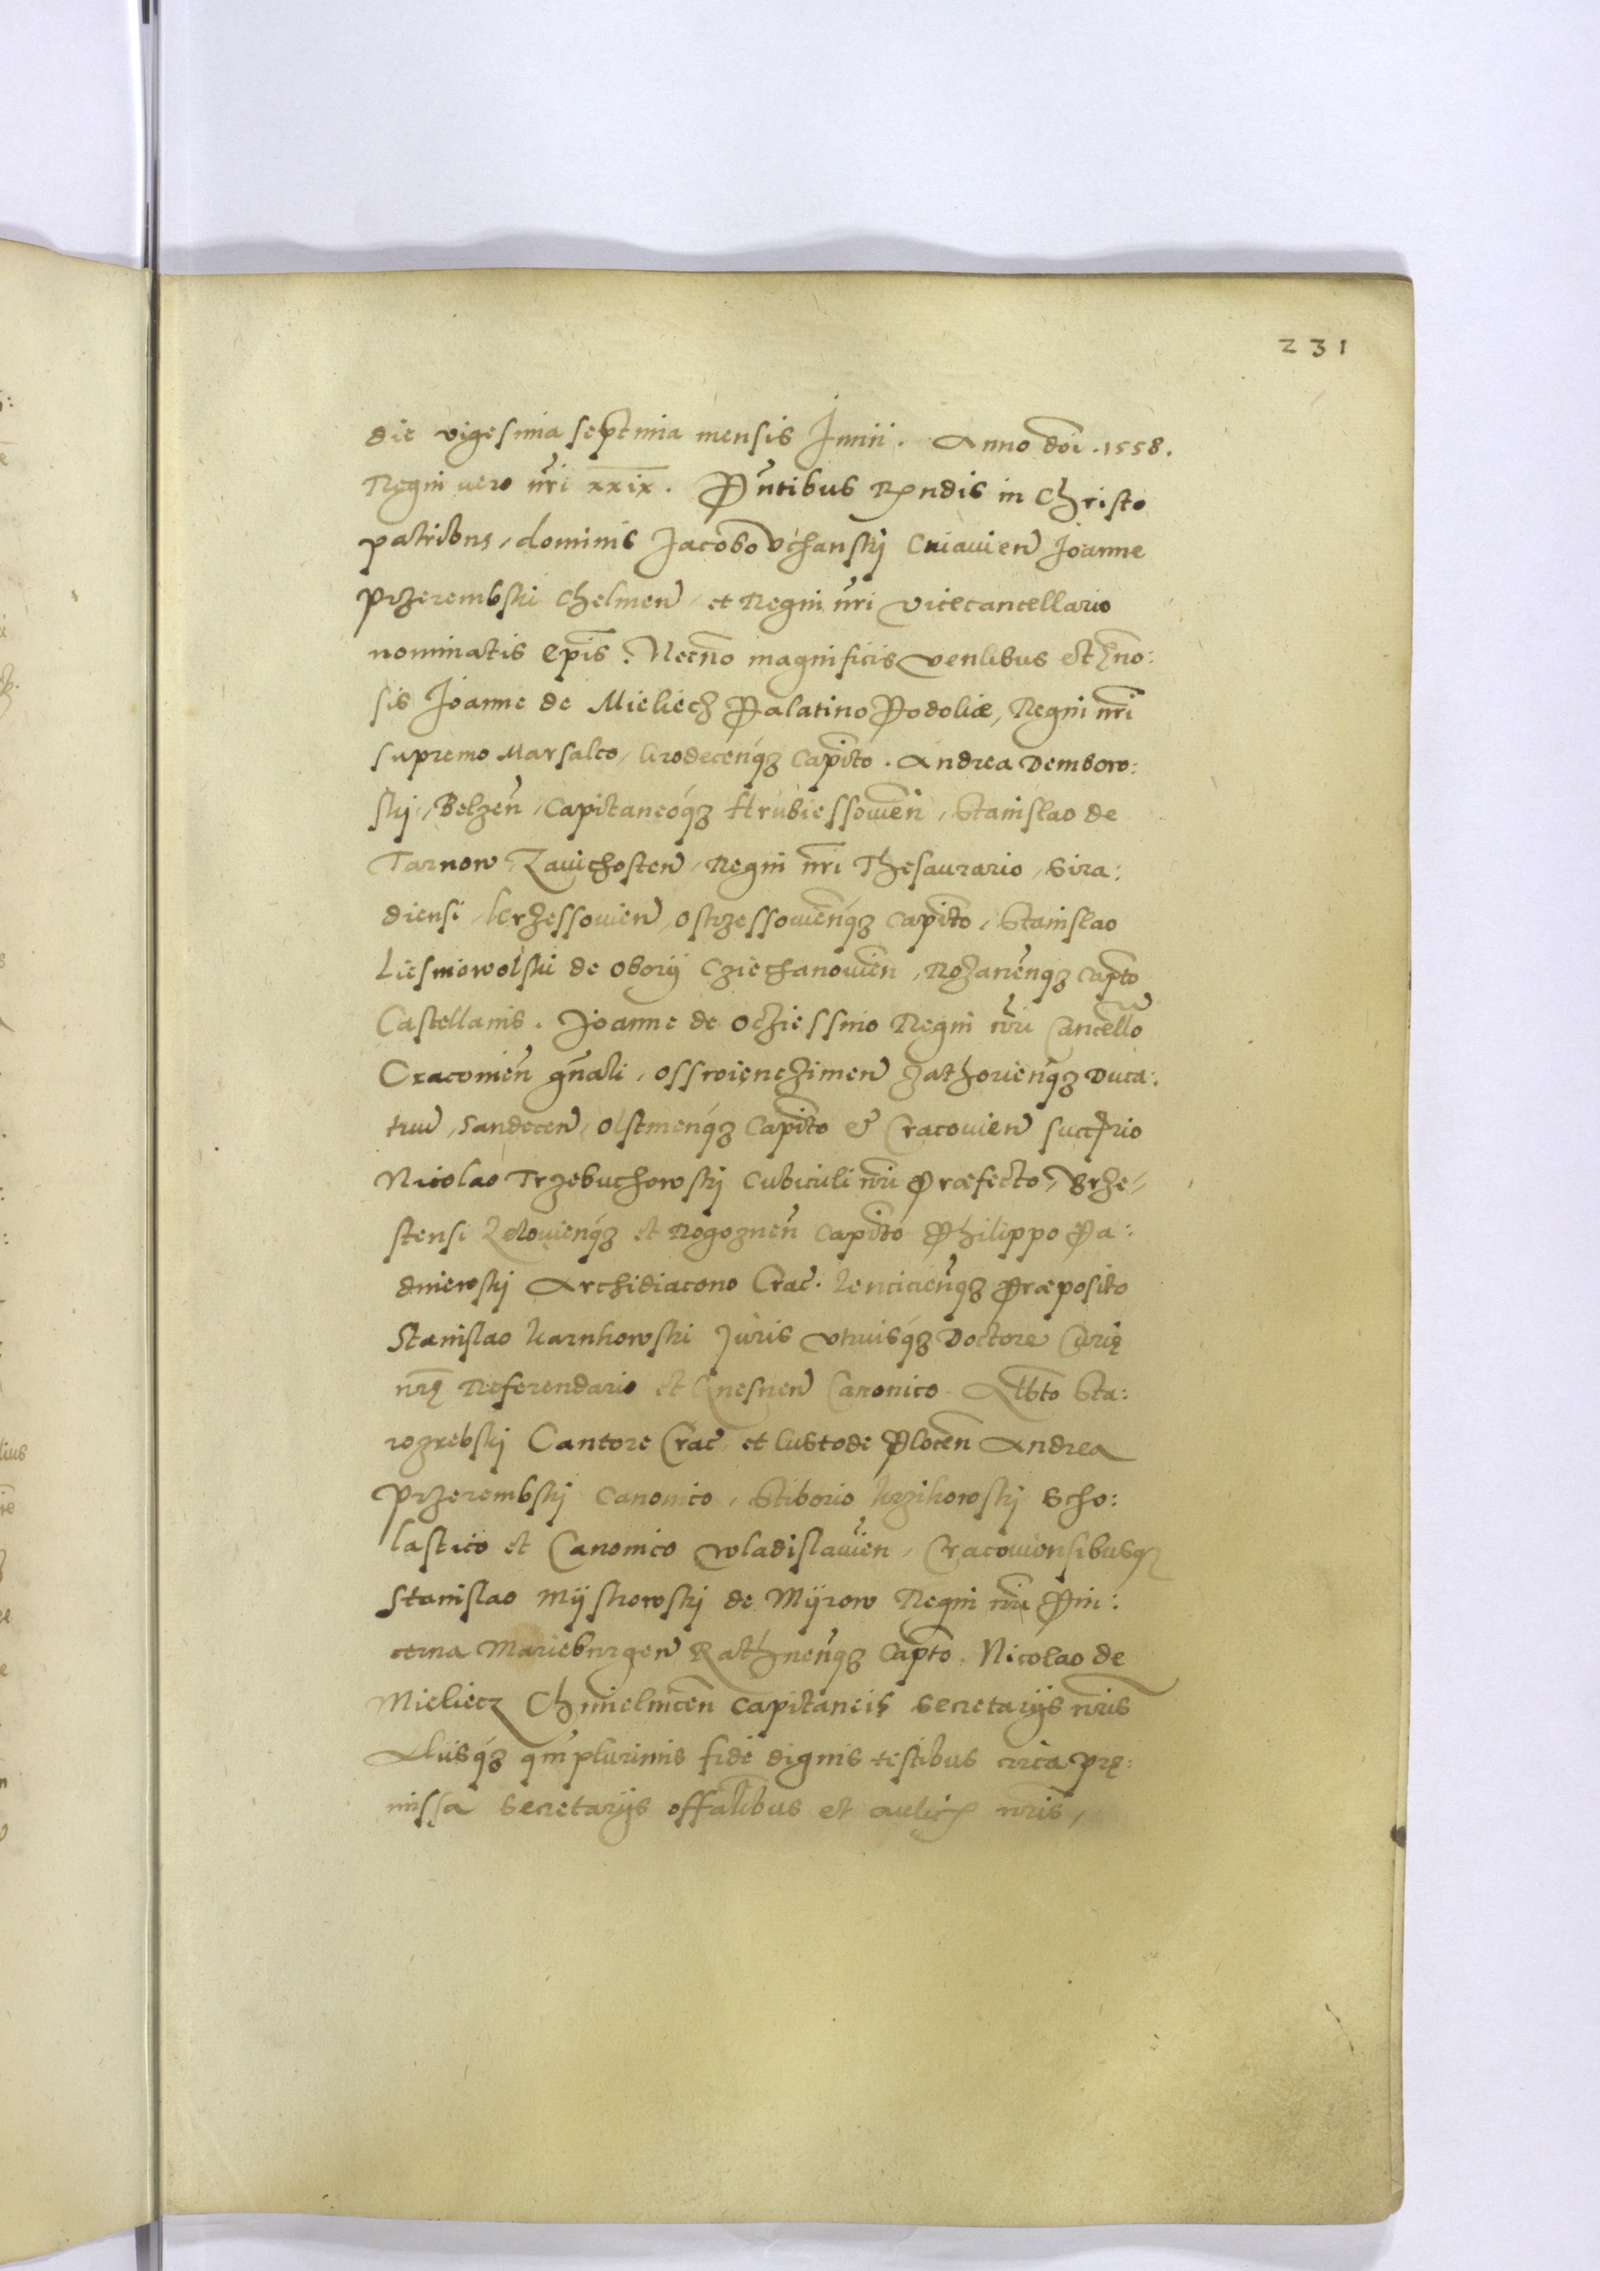 231
die vigesima septima mensis Junii. Anno doi. 1558.
Regni vero nri xxix. Pntibus Rndis in Christo
patribus, dominis Jacobo Vchanskj Cuiavien Joanne
Przerembski Chelmen, et Regni nri vicecancellario
nominatis epis. Necno magnificis venlibus et gno:
sis Joanne de Mieliecz Palatino Podoliæ, Regni nri
supremo Marsalco, Grodecenqz Capito. Andrea Dembow:
skj, Belzen, Capitaneoqz Hrubiessowien, Stanislao de
Tarnow, Zavichosten, Regni nri Thesaurario, Sira:
diensi, Krzessowien, Ostrzessowienqz Capito, Stanislao
Liesniowolski de Oborij Cziechanowien, Rozanenqz Capto
Castellanis. Joanne de Ocziessino Regni nri Cancello
Cracovien gnali, Osswienczimen Zathorienqz Duca:
tuu, Sandecen, Olstinenqz Capito et Cracovien succrio
Nicolao Trzebuchowskj Cubiculi nri Præfecto, Brze-
stensi Zelovienqz et Rogoznen Capito Philippo Pa:
dniewskj Archidiacono Crac. Lencicienqz Præposito
Stanislao Karnkowski Juris vtriusqz Doctore Curię
nrę Referendario et Gnesnen Canonico Albto Sta:
rozrebskj Cantore Crac et Custode Plocen Andrea
Przerembskj Canonico, Stiborio Krzikowskj Scho:
lastico et Canonico Wladislavien, Cracoviensibusqz
Stanislao Mijskowskj de Mijrow Regni nri Pin:
cerna Marieburgen Rathnenqz Capto. Nicolao de
Mieliecz Chmielnicen Capitaneis Secretarijs nris
Aliisqz qmplurimis fide dignis testibus circa prę:
missa Secretarijs offalibus et aulicis nris,